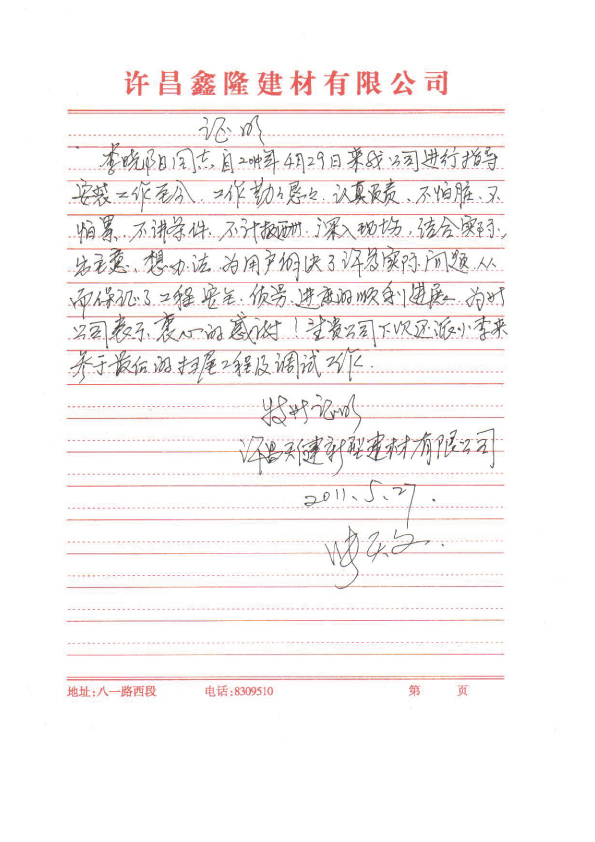 许昌鑫隆建材有限公司
证明
李晓阳同志自2011年4月29日来我公司进行指导
安装工作至今，工作勤勤恳恳，认真负责，不怕脏，不
怕累，不讲条件，不计报酬，深入现场，结合实际，
出主意，想办法，为用户解决了许多实际问题，从
而保证了工程安全、质量、进度的顺利进展，为此
公司表示衷心的感谢！望贵公司下次还派小李来
参于最后的扫尾工程及调试工作。
特此证明
许昌天健新型建材有限公司
2011.5.27.
地址:八一路西段 电话:8309510 第 页